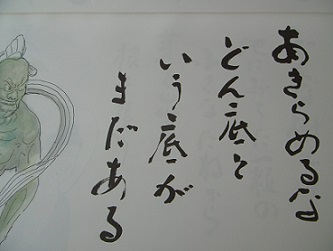 あきらめるな
どん底と
いう底が
まだある